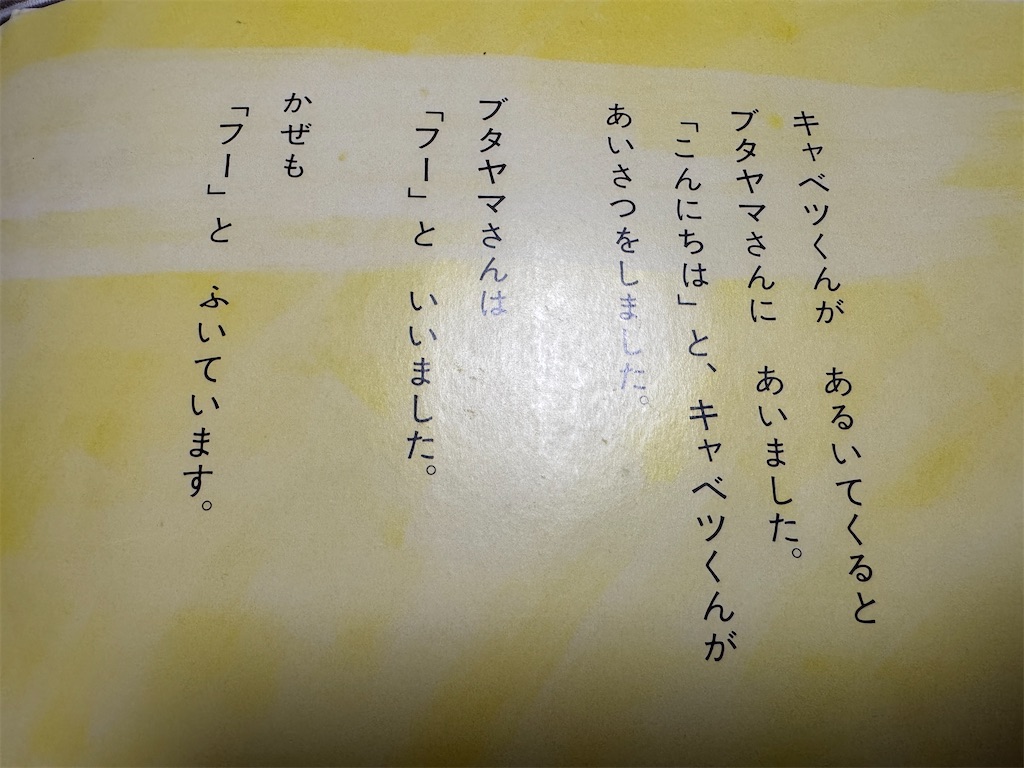 キャベツくんが　あるいてくると
ブタヤマさんに　あいました。
「こんにちは」と、キャベツくんが
あいさつをしました。
ブタヤマさんは
「フー」と　いいました。
かぜも
「フー」と　ふいています。